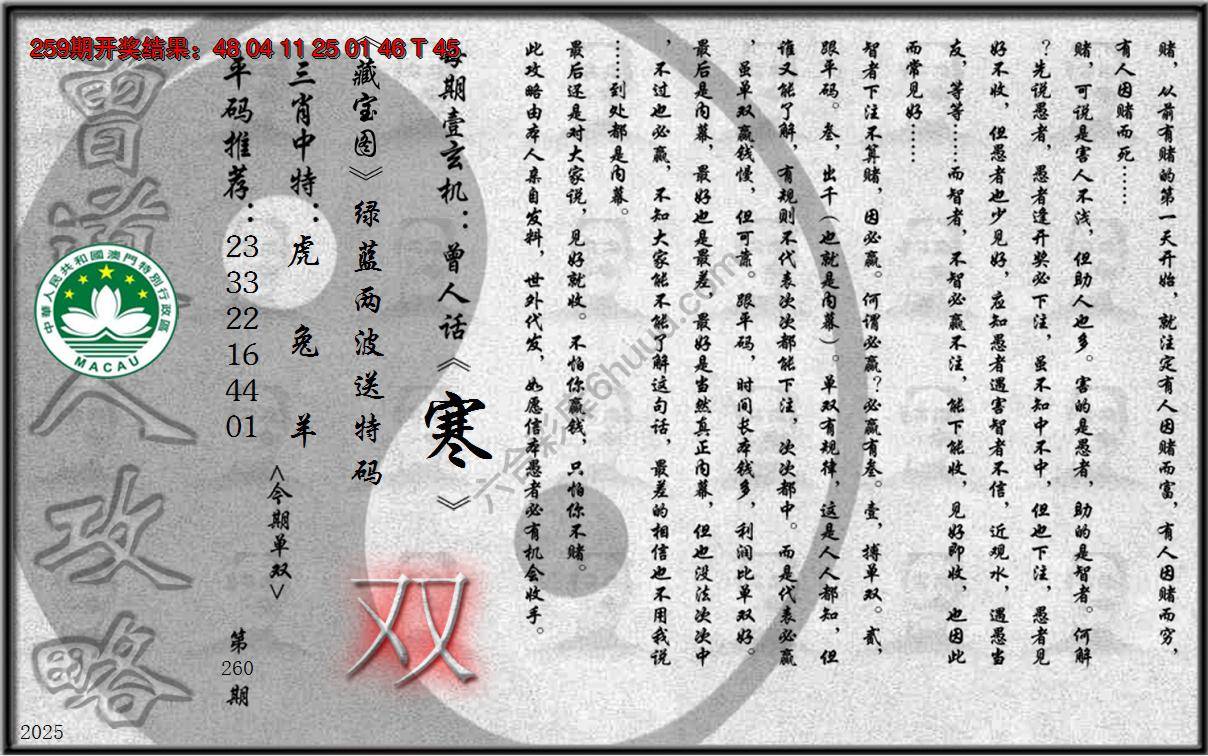 259期开奖结果：48 04 11 25 01 46 T 45
赌，从前有赌的第一天开始，就注定有人因赌而富，有人因赌而穷，
有人因赌而死……
赌，可说是害人不浅，但助人也多。害的是愚者，助的是智者。何解
？先说愚者，愚者逢开奖必下注，虽不知中不中，但也下注，愚者见
好不收，但愚者也少见好，应知愚者遇害智者不信，近观水，遇愚当
友，等等……而智者，不智必赢不注，能下能收，见好即收，也因此
而常见好……
智者下注不算赌，因必赢。何谓必赢？必赢有叁。壹，搏单双。贰，
跟平码。叁，出千（也就是内幕）。单双有规律，这是人人都知，但
谁又能了解，有规则不代表次次都能下注，次次都中。而是代表必赢
，虽单双赢钱慢，但可靠。跟平码，时间长本钱多，利润比单双好。
最后是内幕，最好也是最差，最好是当然真正内幕，但也没法次次中
，不过也必赢，不知大家能不能了解这句话，最差的相信也不用我说
……到处都是内幕。
最后还是对大家说，见好就收。不怕你赢钱，只怕你不赌。
此攻略由本人亲自发料，世外代发，如愿信本愚者必有机会收手。
每期壹玄机：曾人话《寒》
《藏宝图》绿蓝两波送特码
双
三肖中特：虎 兔 羊
<今期单双>
平码推荐：
23
33
22
16
44
01
第
260
期
曾道人攻略
中華人民共和國澳門特別行政區
MACAU
六合彩库6huuu.com
2025